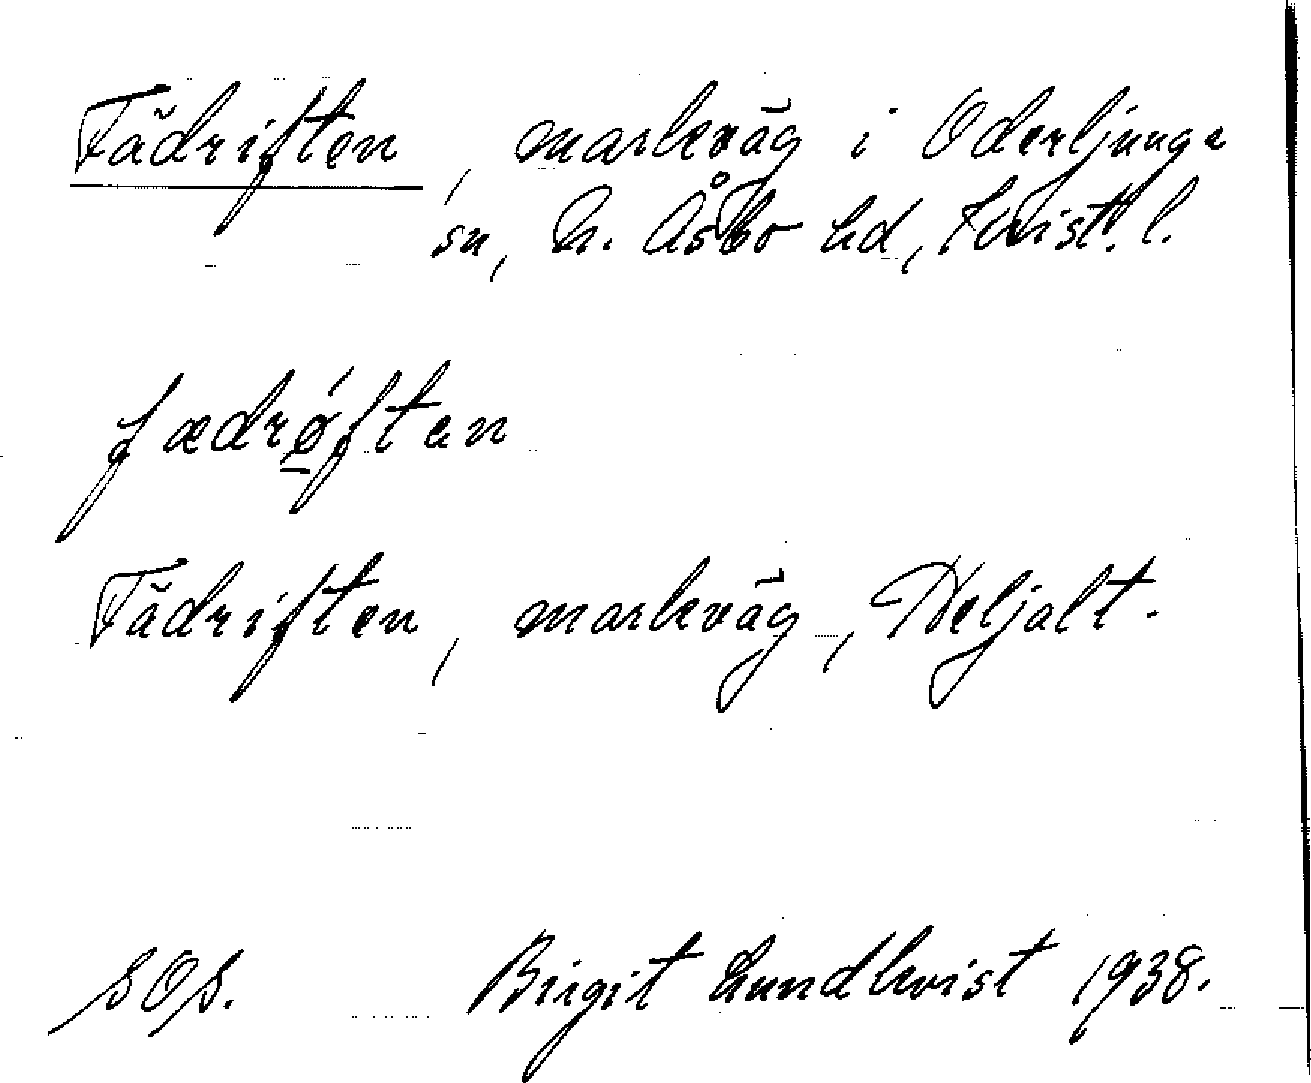 Fädriften, markväg i Oderljunga
sn, N. Åsbo hd, Krist. l.
fædrǿften
Fädriften, markväg, Heljalt.
SOS. Birgit Lundkvist 1938.